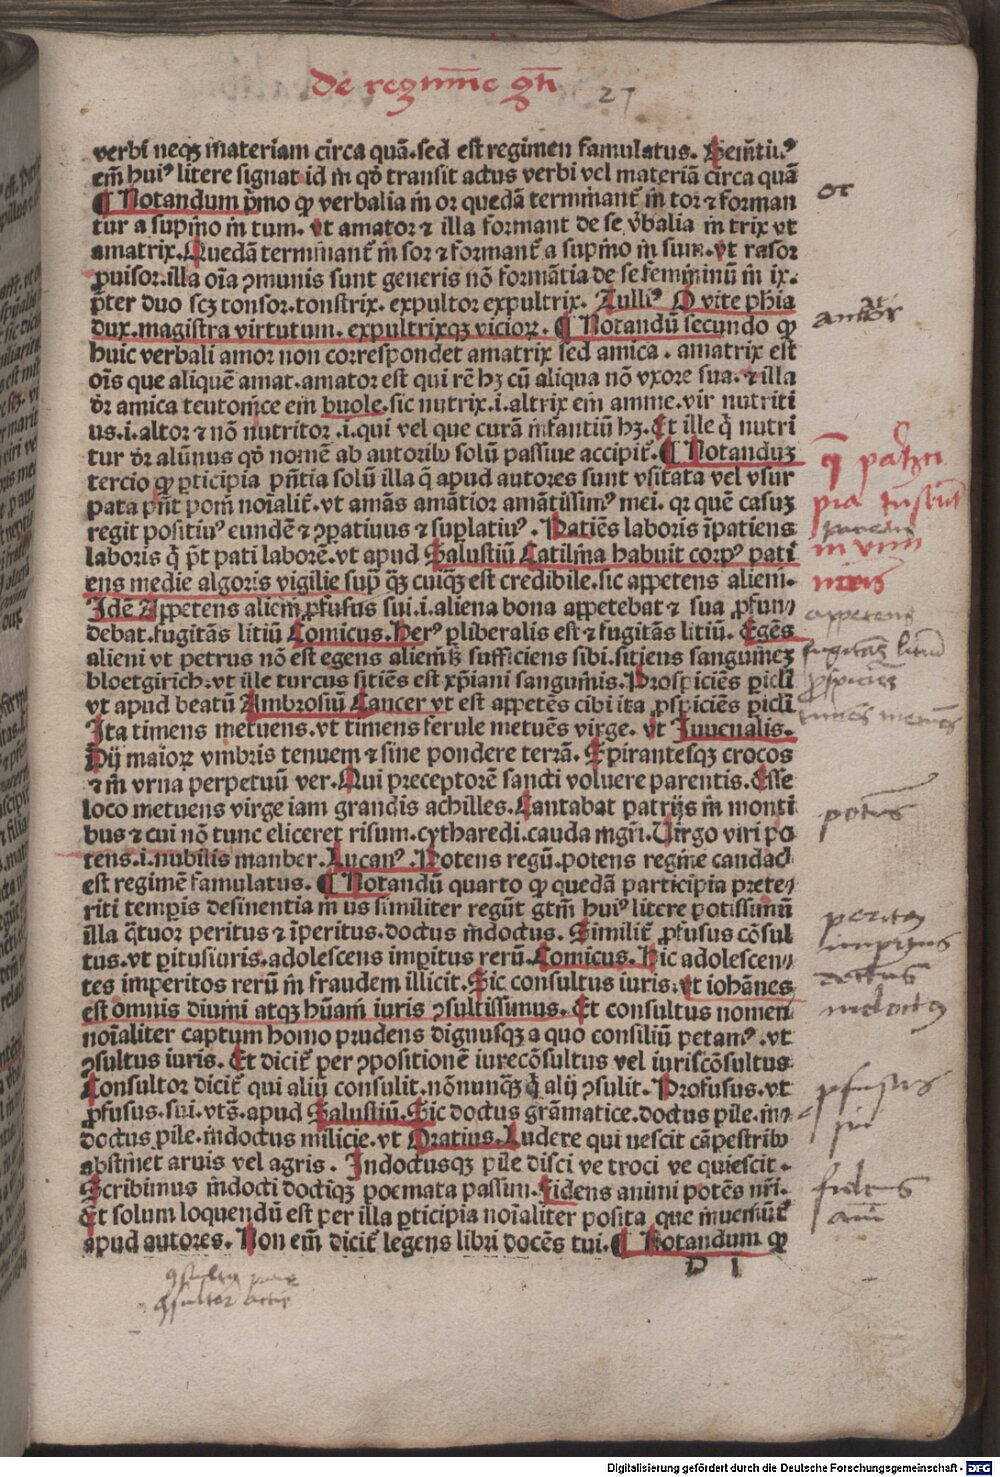 de regimīe gtī 27
verbi neqꝫ materiam circa quā.sed est regimen famulatus. Sem̄tiuꝰ
em̄ huiꝰ litere signat id in qd̄ transit actus verbi vel materiā circa quā
¶ Notandum p̄mo ꝙ verbalia in or quedā terminant̄ in tor ⁊ forman
or
tur a supino in tum. vt amator ⁊ illa formant de se v̄balia in trix vt
amatrix.Quedā terminant̄ in sor ⁊ formant̄ a supino in sum.vt rasor
ꝓuisor.illa oīa ꝯmunis sunt generis nō formātia de se femininū in ix.
p̄ter duo scꝫ tonsor.tonstrix. expultor expultrix. Tulliꝰ O vite phīa
dux.magistra virtutum. expultrixqꝫ vicioꝝ. ¶ Notandū secundo ꝙ
amator
huic verbali amor non correspondet amatrix sed amica . amatrix est
oīs que aliquē amat.amator est qui rē hꝫ cū aliqua nō vxore sua.⁊ illa
dr̄ amica teutonice em̄ buole.sic nutrix.i.altrix em̄ amme.vir nutriti
us.i.altor ⁊ nō nutritor .i.qui vel que curā infantiū hꝫ.Et ille q̄ nutri
tur dr̄ alūnus qd̄ nomē ab autorib⁹ solū passiue accipit̄.¶ Notanduꝫ
tercio ꝙ ꝑticipia pn̄tia solū illa q̄ apud autores sunt vsitata vel vsur
pata pn̄t poni noīalit̄.vt amās amātior amātissimꝰ mei. qꝛ quē casuꝫ
regit positiuꝰ eundē ⁊ ꝯpatiuus ⁊ suplatiuꝰ. Patiēs laboris īpatiens
in vim
laboris q̄ pt̄ pati laborē.vt apud Salustiū Catilina habuit corpꝰ pati
ens medie algoris vigilie sup̄ qꝫ cuiqꝫ est credibile.sic appetens alieni.
Idē Appetens alieni ꝓfusus sui.i.aliena bona appetebat ⁊ sua ꝓfun/
appetens
debat.fugitās litiū Comicus.Herꝰ ꝑliberalis est ⁊ fugitās litiū. Egēs
fugitās litiū
alieni vt petrus nō est egens alieni sꝫ sufficiens sibi.sitiens sanguineꝫ
bloetgirich.vt ille turcus sitiēs est xp̄iani sanguinis.Prospiciēs ꝑicli
ꝓspiciēs
vt apud beatū Ambrosiū Cancer vt est appetēs cibi ita ꝓspiciēs ꝑicli
timēs metuēs
Ita timens metuens.vt timens ferule metuēs virge. vt Iuuenalis.
Dij maioꝝ vmbris tenuem ⁊ sine pondere terrā. Spirantesqꝫ crocos
⁊ in vrna perpetuū ver.Qui preceptorē sancti voluere parentis.Esse
loco metuens virge iam grandis achilles.Cantabat patrijs in monti
potēs
bus ⁊ cui nō tunc eliceret risum.cytharedi.cauda mgr̄i.Virgo viri po
tens.i.nubilis manber.Lucanꝰ.Potens regū.potens regine candaci
est regimē famulatus. ¶ Notandū quarto ꝙ quedā participia prete/
riti temporis desinentia in us similiter regūt gtm̄ huiꝰ litere potissimū
illa q̄tuor peritus ⁊ īperitus.doctus indoctus. Similit̄ ꝓfusus cōsul
peritus
tus.vt ꝑitusiuris.adolescens imꝑitus rerū.Comicus.Hic adolescen/
tes imperitos rerū in fraudem illicit.Sic consultus iuris.vt iohānes
est omnis diuini atqꝫ hūani iuris ꝯsultissimus. Et consultus nomen
indoctus
noīaliter captum homo prudens dignusqꝫ a quo consiliū petamꝰ.vt
ꝯsultus iuris. Et dicit̄ per ꝯpositionē iurecōsultus vel iuriscōsultus
Consultor dicit̄ qui aliū consulit.nōnunqꝫ q̄ alij ꝯsulit. Profusus.vt
ꝓfusus
ꝓfusus.sui.vts̄.apud Salustiū.Sic doctus grāmatice.doctus pile.in/
doctus pile.indoctus milicie.vt Oratius.Ludere qui nescit cāpestrib⁹
abstinet aruis vel agris . Indoctusqꝫ pile disci ve troci ve quiescit .
Scribimus indocti doctiqꝫ poemata passim.Fidens animi potēs nr̄i.
fidens
ai̅i
Et solum loquendū est per illa ꝑticipia noīaliter posita que inueniūt̄
apud autores. Non em̄ dicit̄ legens libri docēs tui.¶ Notandum ꝙ
D 1
Digitalisierung gefördert durch die Deutsche Forschungsgemeinschaft - DFG